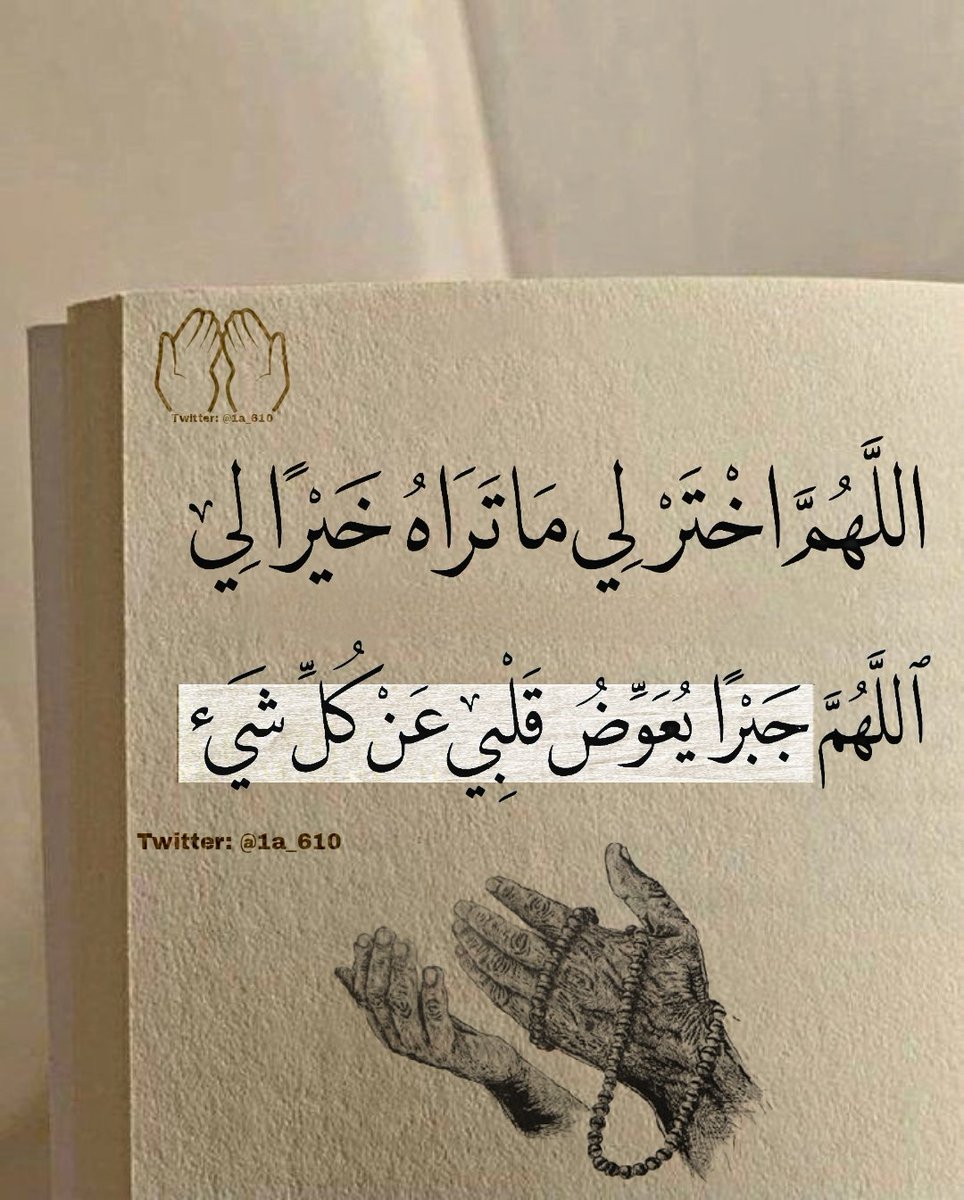 Twitter: @1a_610
اللَّهُمَّ اخْتَرْ لِي مَا تَرَاهُ خَيْرًا لِي
ٱللَّهُمَّ جَبْرًا يُعَوِّضُ قَلْبِي عَنْ كُلِّ شَيَء
Twitter: @1a_610